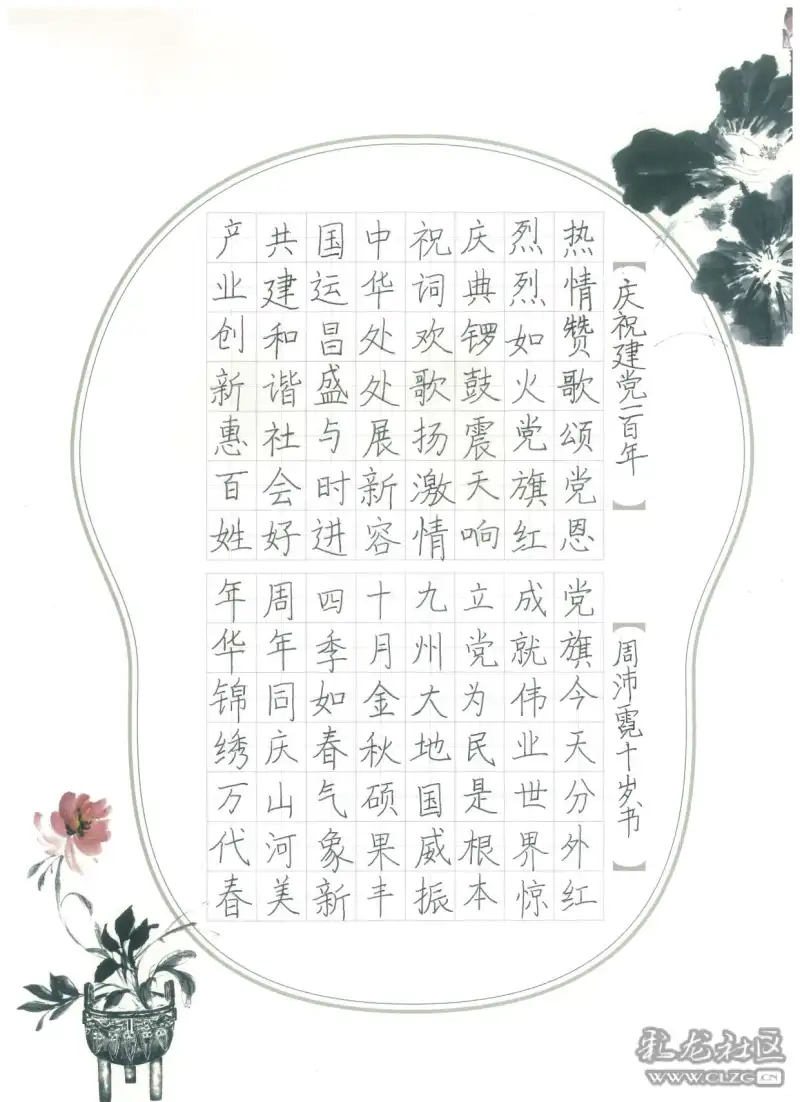 庆祝建党一百年
周沛霓十岁书
热情赞歌颂党恩
党旗今天分外红
烈烈如火党旗红
成就伟业世界惊
庆典锣鼓震天响
立党为民是根本
祝词欢歌扬激情
九州大地国威振
中华处处展新容
十月金秋硕果丰
国运昌盛与时进
四季如春气象新
共建和谐社会好
周年同庆山河美
产业创新惠百姓
年华锦绣万代春
乳龙社区
WWW.CLZG.CN